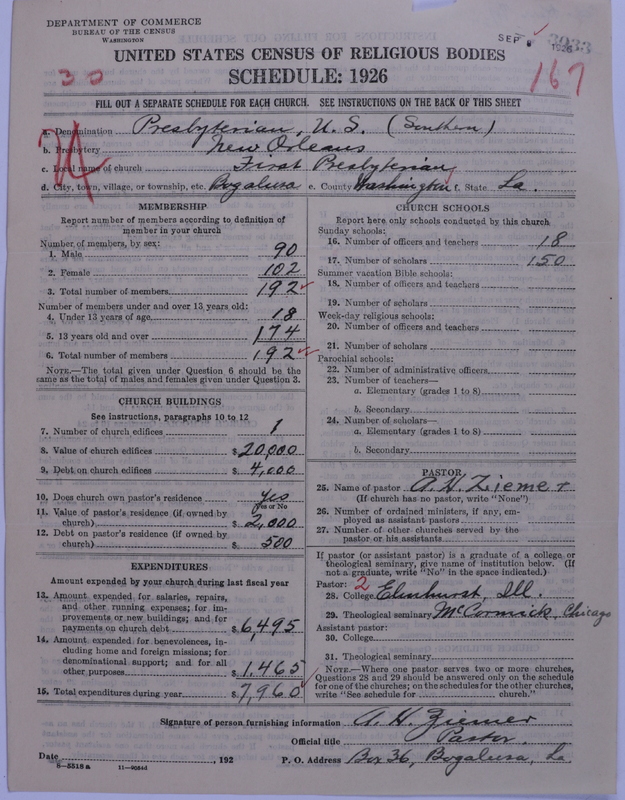 DEPARTMENT OF COMMERCE
BUREAU OF THE CENSUS
WASHINGTON
SEP
1926
3033
UNITED STATES CENSUS OF RELIGIOUS BODIES
SCHEDULE: 1926
30
167
FILL OUT A SEPARATE SCHEDULE FOR EACH CHURCH. SEE INSTRUCTIONS ON THE BACK OF THIS SHEET
74
a. Denomination Presbyterian, U.S. (Southern)
b. Presbytery New Orleans
c. Local name of church First Presbyterian
d. City, town, village, or township, etc. Bogalusa e. County Washington f. State La.
MEMBERSHIP
Report number of members according to definition of
member in your church
Number of members, by sex:
1. Male 90
2. Female 102
3. Total number of members 192
Number of members under and over 13 years old:
4. Under 13 years of age 18
5. 13 years old and over 174
6. Total number of members 192
NOTE.—The total given under Question 6 should be
same as the total of males and females given under Question 3.
CHURCH BUILDINGS
See instructions, paragraphs 10 to 12
7. Number of church edifices 1
8. Value of church edifices $20,000
9. Debt on church edifices $4,000
10. Does church own pastor's residence yes
Yes or No
11. Value of pastor's residence (if owned by
church) $2,000
12. Debt on pastor's residence (if owned by
church) $500
EXPENDITURES
Amount expended by your church during last fiscal year
13. Amount expended for salaries, repairs,
and other running expenses; for im-
provements or new buildings; and for
payments on church debt $6,495
14. Amount expended for benevolences, in-
cluding home and foreign missions; for
denominational support; and for all
other purposes $1,465
15. Total expenditures during year $7,960
CHURCH SCHOOLS
Report here only schools conducted by this church
Sunday schools:
16. Number of officers and teachers 18
17. Number of scholars 150
Summer vacation Bible schools:
18. Number of officers and teachers
19. Number of scholars
Week-day religious schools:
20. Number of officers and teachers
21. Number of scholars
Parochial schools:
22. Number of administrative officers
23. Number of teachers—
a. Elementary (grades 1 to 8)
b. Secondary
24. Number of scholars—
a. Elementary (grades 1 to 8)
b. Secondary
PASTOR
25. Name of pastor A. H. Ziemer
(If church has no pastor, write "None")
26. Number of ordained ministers, if any, em-
ployed as assistant pastors
27. Number of other churches served by the
pastor or his assistants
If pastor (or assistant pastor) is a graduate of a college or
theological seminary, give name of institution below. (If
not a graduate, write "No" in the space indicated.)
Pastor: 2
28. College Elmhurst, Ill.
29. Theological seminary McCormick, Chicago
Assistant pastor:
30. College
31. Theological seminary
NOTE.—Where one pastor serves two or more churches,
Questions 28 and 29 should be answered only on the schedule
for one of the churches; on the schedules for the other churches,
write "See schedule for church."
Signature of person furnishing information A. H. Ziemer
Official title Pastor.
Date , 192 P. O. Address Box 36, Bogalusa, La
8-5518a 11-9034d